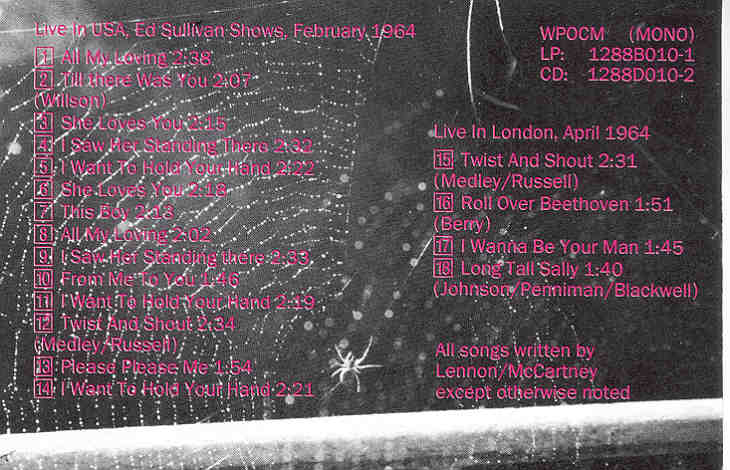 Live In USA, Ed Sullivan Shows, February 1964
1 All My Loving 2:38
2 Till there Was You 2:07
(Willson)
3 She Loves You 2:15
4 I Saw Her Standing There 2:32
5 I Want To Hold Your Hand 2:22
6 She Loves You 2:18
7 This Boy 2:13
8 All My Loving 2:02
9 I Saw Her Standing there 2:33
10 From Me To You 1:46
11 I Want To Hold Your Hand 2:19
12 Twist And Shout 2:34
(Medley/Russell)
13 Please Please Me 1:54
14 I Want To Hold Your Hand 2:21
WPOCM (MONO)
LP: 1288B010-1
CD: 1288D010-2
Live In London, April 1964
15 Twist And Shout 2:31
(Medley/Russell)
16 Roll Over Beethoven 1:51
(Berry)
17 I Wanna Be Your Man 1:45
18 Long Tall Sally 1:40
(Johnson/Penniman/Blackwell)
All songs written by
Lennon/McCartney
except otherwise noted